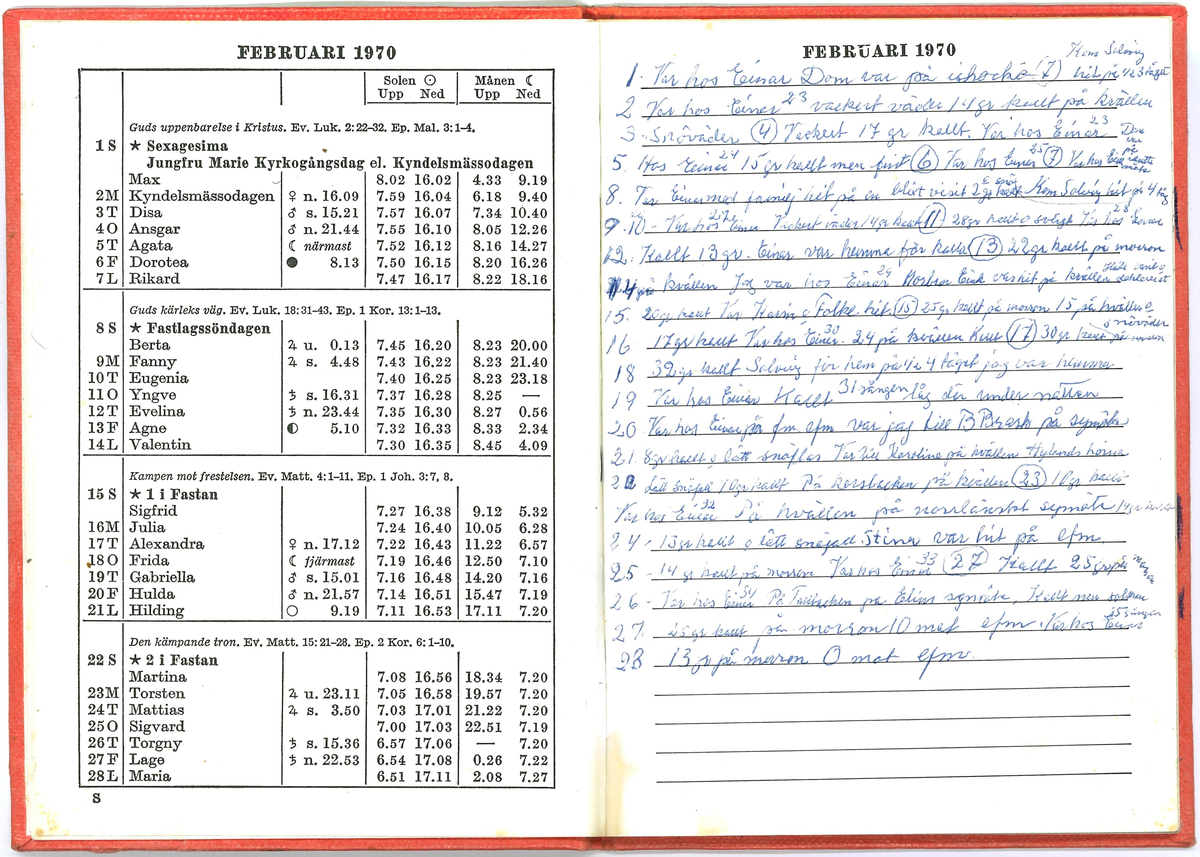 FEBRUARI 1970
Solen ☉ Månen ☾
Upp Ned Upp Ned
Guds uppenbarelse i Kristus. Ev. Luk. 2:22–32. Ep. Mal. 3:1–4.
1 S ★ Sexagesima
Jungfru Marie Kyrkogångsdag el. Kyndelsmässodagen
Max 8.02 16.02 4.33 9.19
2 M Kyndelsmässodagen ♀ n. 16.09 7.59 16.04 6.18 9.40
3 T Disa ♂ s. 15.21 7.57 16.07 7.34 10.40
4 O Ansgar ♂ n. 21.44 7.55 16.10 8.05 12.26
5 T Agata ☾ närmast 7.52 16.12 8.16 14.27
6 F Dorotea ● 8.13 7.50 16.15 8.20 16.26
7 L Rikard 7.47 16.17 8.22 18.16
Guds kärleks väg. Ev. Luk. 18:31–43. Ep. 1 Kor. 13:1–13.
8 S ★ Fastlagssöndagen
Berta ♃ u. 0.13 7.45 16.20 8.23 20.00
9 M Fanny ♃ s. 4.48 7.43 16.22 8.23 21.40
10 T Eugenia 7.40 16.25 8.23 23.18
11 O Yngve ♄ s. 16.31 7.37 16.28 8.25 —
12 T Evelina ♄ n. 23.44 7.35 16.30 8.27 0.56
13 F Agne ◐ 5.10 7.32 16.33 8.33 2.34
14 L Valentin 7.30 16.35 8.45 4.09
Kampen mot frestelsen. Ev. Matt. 4:1–11. Ep. 1 Joh. 3:7, 8.
15 S ★ 1 i Fastan
Sigfrid 7.27 16.38 9.12 5.32
16 M Julia 7.24 16.40 10.05 6.28
17 T Alexandra ♀ n. 17.12 7.22 16.43 11.22 6.57
18 O Frida ☾ fjärmast 7.19 16.46 12.50 7.10
19 T Gabriella ♂ s. 15.01 7.16 16.48 14.20 7.16
20 F Hulda ♂ n. 21.57 7.14 16.51 15.47 7.19
21 L Hilding ○ 9.19 7.11 16.53 17.11 7.20
Den kämpande tron. Ev. Matt. 15:21–28. Ep. 2 Kor. 6:1–10.
22 S ★ 2 i Fastan
Martina 7.08 16.56 18.34 7.20
23 M Torsten ♃ u. 23.11 7.05 16.58 19.57 7.20
24 T Mattias ♃ s. 3.50 7.03 17.01 21.22 7.20
25 O Sigvard 7.00 17.03 22.51 7.19
26 T Torgny ♄ s. 15.36 6.57 17.06 — 7.20
27 F Lage ♄ n. 22.53 6.54 17.08 0.26 7.22
28 L Maria 6.51 17.11 2.08 7.27
S
FEBRUARI 1970
Kom Solvig
1. Var hos Einar Dom var på ishockö (7) hit på 1/2 3 tåget
2 Var hos Einar 23 vackert väder 14 gr kallt på kvällen
3 - Snöväder (4) Vackert 17 gr kallt. Var hos Einar 23
5. Hos Einar 24 15 gr kallt men fint (6) Var hos Einar 25 (7) Var hos
8. Var Einar med familj hit på en blixt visit Kom Solvig hit på 4 tåg
9. 10 - Var hos Einar Vackert väder 14 gr kallt (11) 28 gr kallt o soligt Var hos 28 Einar
12. Kallt 13 gr. Einar var hemma för kalla (13) 22 gr kallt på morron
14 på kvällen Jag var hos Einar 29 var hit på kvällen
15. 20 gr kallt Var Karin o Folke hit. (15) 25 gr kallt på morron 15 på kvällen o
snöväder
16 17 gr kallt Var hos Einar. 30 24 på kvällen Kallt (17) 30 gr kallt på morron
18 32 gr kallt Solvig för hem på 1/2 4 tåget jag var hemma
19 Var hos Einar Kallt 31 sången låg där under natten
20 Var hos Einar på fm. efm var jag till B Brask på symöte
21. 8 gr kallt o lätt snöflas Var till Karolina på kvällen Hylands hörna
22 Lätt snöfall 10 gr kallt På korsbacken på kvällen (23) 10 gr kallt
Var hos Einar 32 På kvällen på norrländskt symöte 14 gr
24 - 13 gr kallt o lätt snöfall Stina var hit på efm.
25 - 14 gr kallt på morron Var hos Einar 33 (27) Kallt 25 gr på morron
26 - Var hos Einar 34 På Tallbacken på Elias symöte. Kallt men
27. 25 gr kallt på morron 10 mot efm Var hos Einar 35 gången
28 13 gr på morron 0 mot efm.